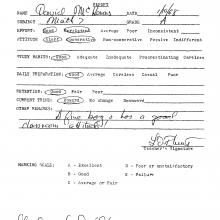 REPORT
NAME David
SUBJECT Math 7 GRADE A
EFFORT: Good Consistent Average Poor Inconsistent
ATTITUDE: Alert Cooperative Non-cooperative Passive Indifferent
STUDY HABITS: Good Adequate Inadequate Procrastinating Careless
DAILY PREPARATION: Good Average Careless Casual Poor
RETENTION: Good Fair Poor
CURRENT TREND: Up No change Downward
OTHER REMARKS:
A fine boy & has a good
classroom attitude!
Teacher's Signature
MARKING SCALE: A - Excellent D - Poor or unsatisfactory
B - Good E - Failure
C - Average or Fair